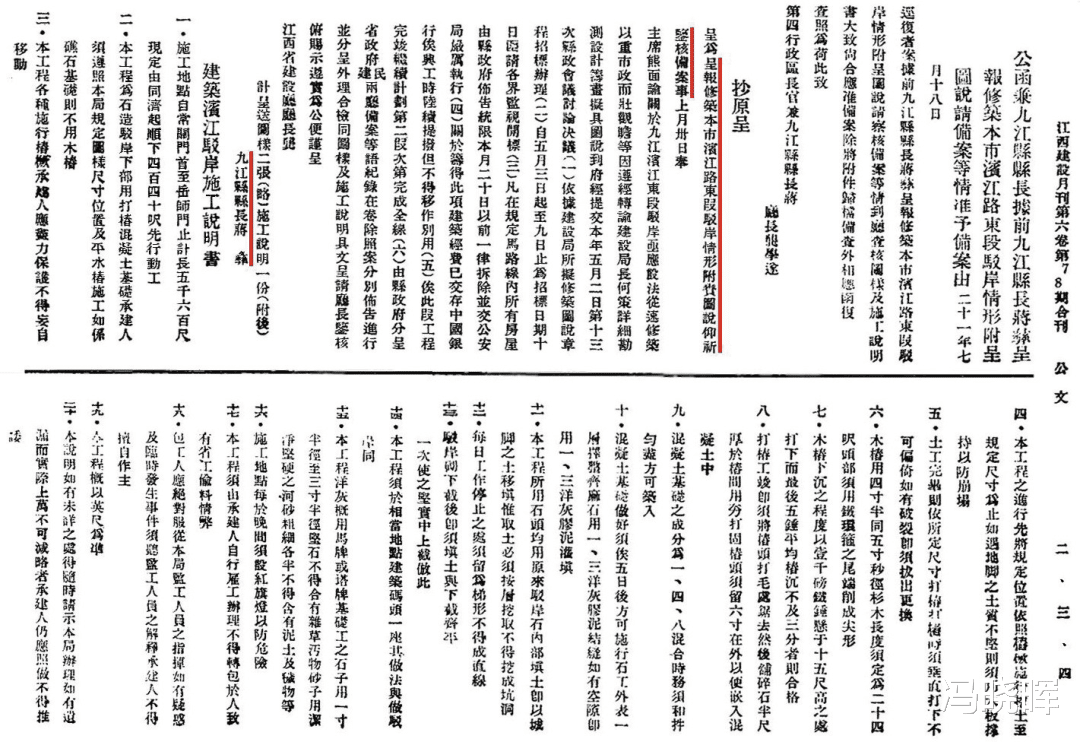 江西建設月刊第六卷第7 8期合刊　公文　二、三、四
公函兼九江縣縣長據前九江縣長蔣彝呈
報修築本市濱江路東段駁岸情形附呈
圖說請備案等情准予備案由 二十一年七
月十八日
逕復者案據前九江縣縣長蔣彝呈報修築本市濱江路東段駁
岸情形附呈圖說請察核備案等情到廳查核圖樣及施工說明
書大致尚合應准備案除將附件歸檔備查外相應函復
查照為荷此致
第四行政區長官兼九江縣縣長蔣
廳長龔學遂
抄原呈
呈為呈報修築本市濱江路東段駁岸情形附賚圖說仰祈
鑒核備案事上月卅日奉
主席熊面諭關於九江濱江東段駁岸亟應設法從速修築
以重市政而壯觀瞻等因遵經轉諭建設局長何策詳細勘
測設計籌畫擬具圖說到府經提交本年五月二日第十三
次縣政會議討論決議(一)依據建設局所擬修築圖說章
程招標辦理(二)自五月三日起至九日止為招標日期十
日函請各界監視開標(三)凡在規定馬路線內所有房屋
由縣政府佈告統限本月二十日以前一律拆除並交公安
局嚴厲執行(四)關於籌得此項建築經費已交存中國銀
行俟興工時陸續提撥但不得移作別用(五)俟此段工程
完竣繼續計劃第二段次第完成全線(六)由縣政府分呈
省政府民建兩廳備案等語紀錄在卷除照案分別佈告進行
並分呈外理合檢同圖樣及施工說明具文呈請廳長鑒核
俯賜示遵實為公便謹呈
江西省建設廳廳長龔
計呈送圖樣二張(略)施工說明一份(附後)
九江縣縣長蔣　彝
建築濱江駁岸施工說明書
一・施工地點自常關門首至岳師門止計長五千六百尺
現定由同濟起順下四百四十呎先行動工
二・本工程為石造駁岸下部用打樁混凝土基礎承建人
須遵照本局規定圖樣尺寸位置及平水樁施工如係
礁石基礎則不用木樁
三・本工程各種施行樁橛承建人應盡力保護不得妄自
移動
四・本工程之進行先將規定位置依照樁橛施行挖土至
規定尺寸為止如遇地脚之土質不堅則須用木板撐
持以防崩塌
五・土工完畢則依所定尺寸打樁打樁時須垂直打下不
可偏倚如有破裂卽須拔出更換
六・木樁用四寸半同五寸秒徑杉木長度須定為二十四
呎頭部須用鐵環箍之尾端削成尖形
七・木樁下沉之程度以壹千磅鐵錘懸于十五尺高之處
打下而最後五錘平均樁沉不及三分者則合格
八・打樁工竣卽須將樁頭打毛處鋸去然後舖碎石半尺
厚於樁間用夯打固樁頭須留六寸在外以便嵌入混
凝土中
九・混凝土基礎之成分為一、四、八混合時務須和拌
勻蓋方可築入
十・混凝土基礎做好須俟五日後方可施行石工外表一
層擇整齊麻石用一、三洋灰膠泥結縫如有空隙卽
用一、三洋灰膠泥灌填
十一・本工程所用石頭均用原來駁岸石內部填土卽以城
脚之土移填惟取土必須按層挖取不得挖成坑洞
十二・每日工作停止之處須留為梯形不得成直線
十三・駁岸砌下截後卽須填土與下截齊平
一次使之堅實中上截做此
十四・本工程須於相當地點建築碼頭一座其做法與做駁
岸同
十五・本工程洋灰概用馬牌或塔牌基礎工之石子用一寸
半徑至三寸半徑堅石不得合有雜草汚物砂子用潔
淨堅硬之河砂粗細各半不得含有泥土及穢物等
十六・施工地點每於晚間須設紅旗燈以防危險
十七・本工程須由承建人自行雇工辦理不得轉包於人致
有省工偷料情弊
十八・包工人應絕對服從本局監工人員之指揮如有疑惑
及臨時發生事件須聽監工人員之解釋承建人不得
擅自作主
十九・本工程概以英尺為準
二十・本說明如有未詳之處得隨時請示本局辦理如有遺
漏而實際上萬不可減略者承建人仍應照做不得推
諉
冯晓晖